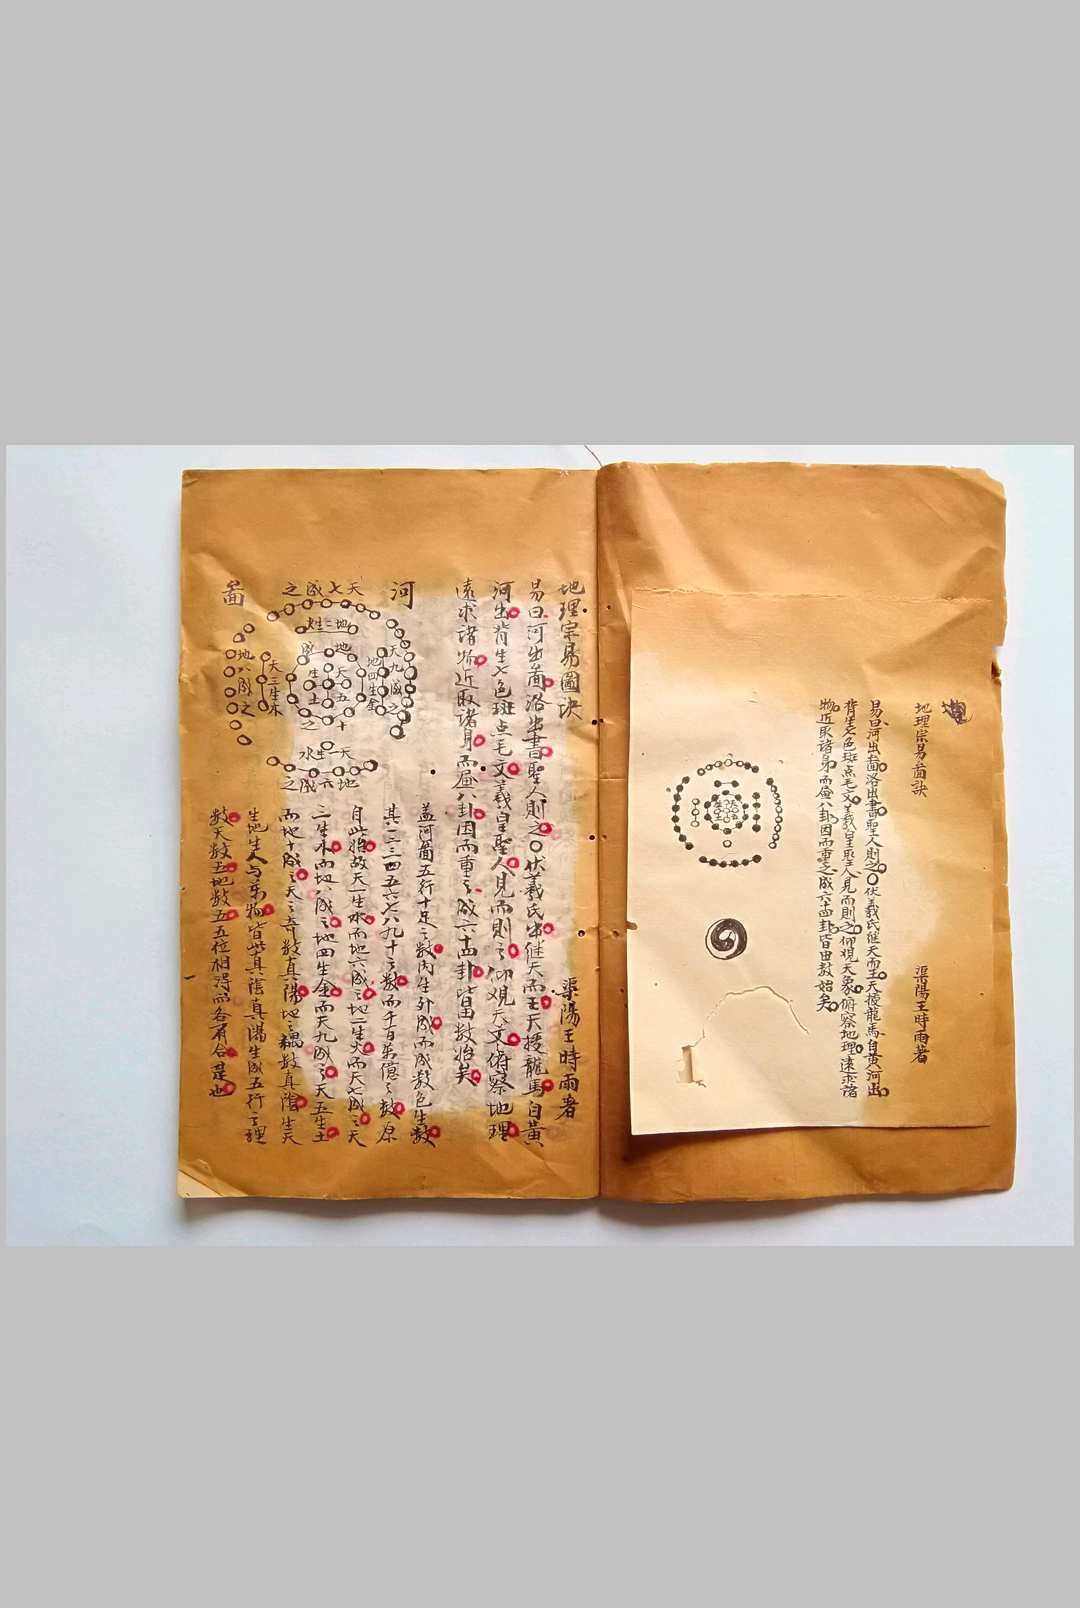 地理宗易圖訣
渠陽王時雨著
易曰河出畵洛出書聖人則之〇伏羲氏継天而王天授龍馬自黃河出
背生七色斑点毛文羲皇聖人見而則之仰观天象俯察地理遠求諸
物近取諸身而畵八卦因而重之成六十四卦皆由数始矣
地理宗易圖訣
渠陽王時雨著
易曰河出畵洛出書聖人則之〇伏羲氏継天而王天授龍馬自黃
河出背生七色斑点毛文羲皇聖人見而則之仰观天文俯察地理
遠求諸物近取諸身而畵八卦因而重之成六十四卦皆由数始矣
河
啚
天七成之
地二生火
天九成之
地四生金
地十成之
天五生土
天三生木
地八成之
天一生水
地六成之
盖河啚五行十足之数内生外成而成数色生数
其一二三四五六七八九十之数而千百萬億之数原
自此始故天一生水而地六成之地二生火而天七成之天
三生木而地八成之地四生金而天九成之天五生土
而地十成之天之奇数真陽地之耦数真陰生天
生地生人与萬物皆此真陰真陽生成五行之理
数天数五地数五五位相得而各有合是也